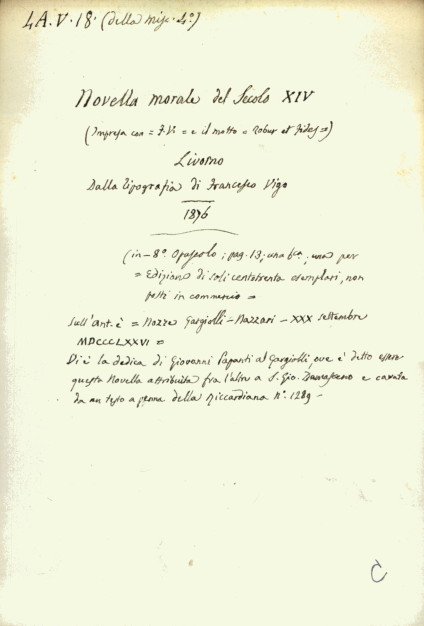 4A.V.18. (della misc. 4º.)
Novella morale del Secolo XIV
(Impresa con = F.V. = e il motto = robur et fides =)
Livorno
Dalla Tipografia di Francesco Vigo
1876
(in-8º. Opuscolo; pag. 13; una bca., una per
= Edizione di soli centotrenta esemplari, non
posti in commercio =
Sull'Ant. è = Nozze Gargiolli-Nazzari - XXX settembre
MDCCCLXXVI =
Di è la dedica di Giovanni Papanti al Gargiolli, ove è detto essere
questa Novella attribuita fra l'altre a S. Gio. Damasceno e cavata
da un testo a penna della Riccardiana nº. 1289 -
C